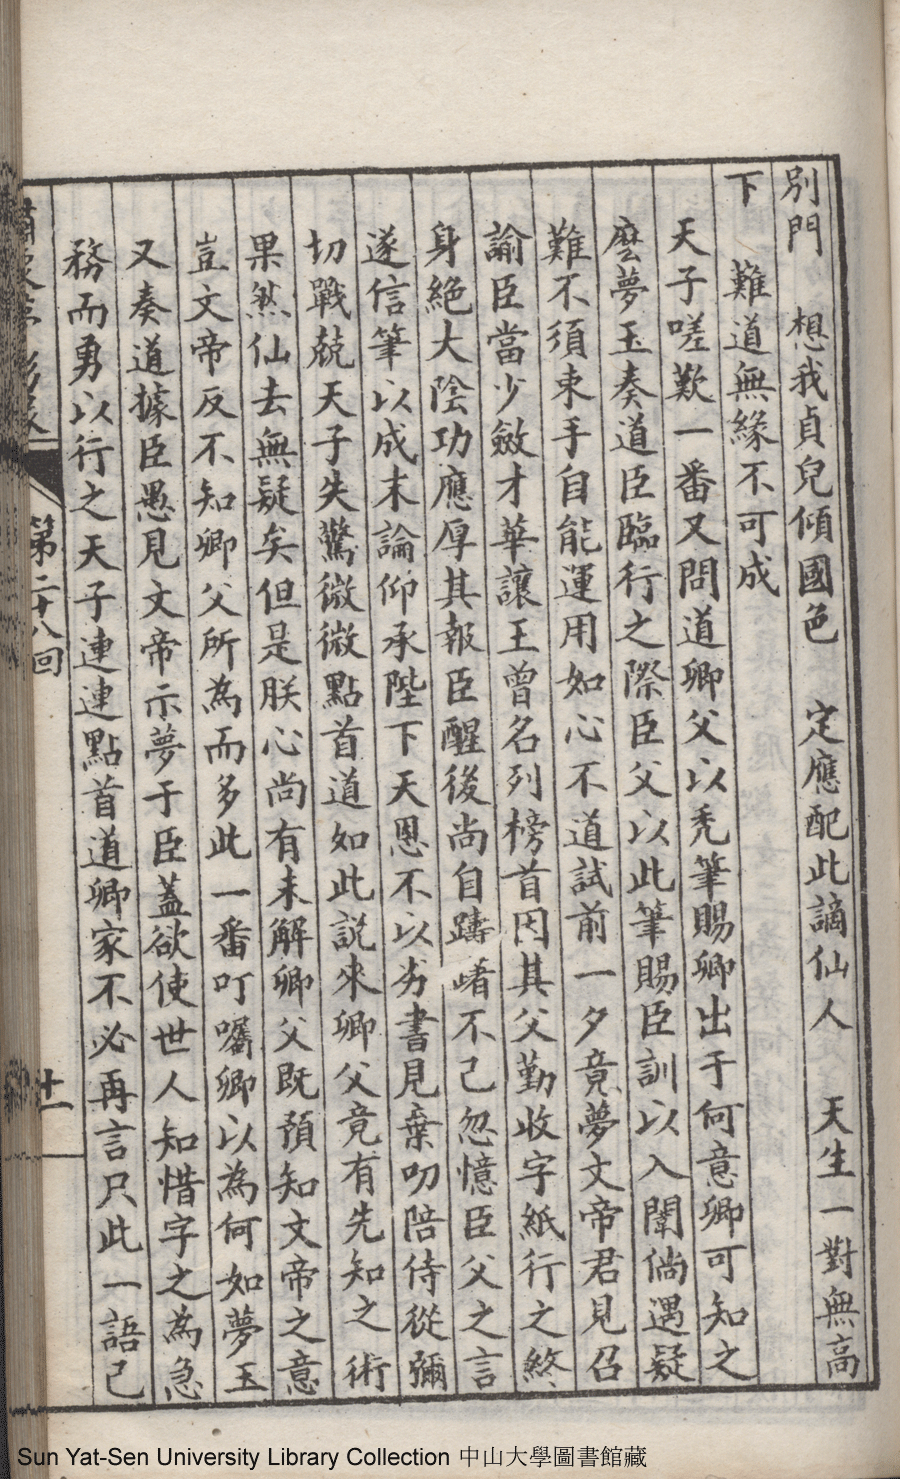 別門　想我貞兒傾國色　定應配此謫仙人　天生一對無高
下　難道無緣不可成
天子嗟歎一番又問道卿父以禿筆賜卿出于何意卿可知之
麼夢玉奏道臣臨行之際臣父以此筆賜臣訓以入闈倘遇疑
難不須束手自能運用如心不道試前一夕竟夢文帝君見召
諭臣當少斂才華讓王曾名列榜首因其父勤收字紙行之終
身絕大陰功應厚其報臣醒後尚自躊躇不已忽憶臣父之言
遂信筆以成末論仰承陛下天恩不以劣書見棄叨陪侍從彌
切戰兢天子失驚微微點首道如此說來卿父竟有先知之術
果然仙去無疑矣但是朕心尚有未解卿父既預知文帝之意
豈文帝反不知卿父所為而多此一番叮囑卿以為何如夢玉
又奏道據臣愚見文帝示夢于臣蓋欲使世人知惜字之為急
務而勇以行之天子連連點首道卿家不必再言只此一語已
第二十八回　十一
Sun Yat-Sen University Library Collection 中山大學圖書館藏